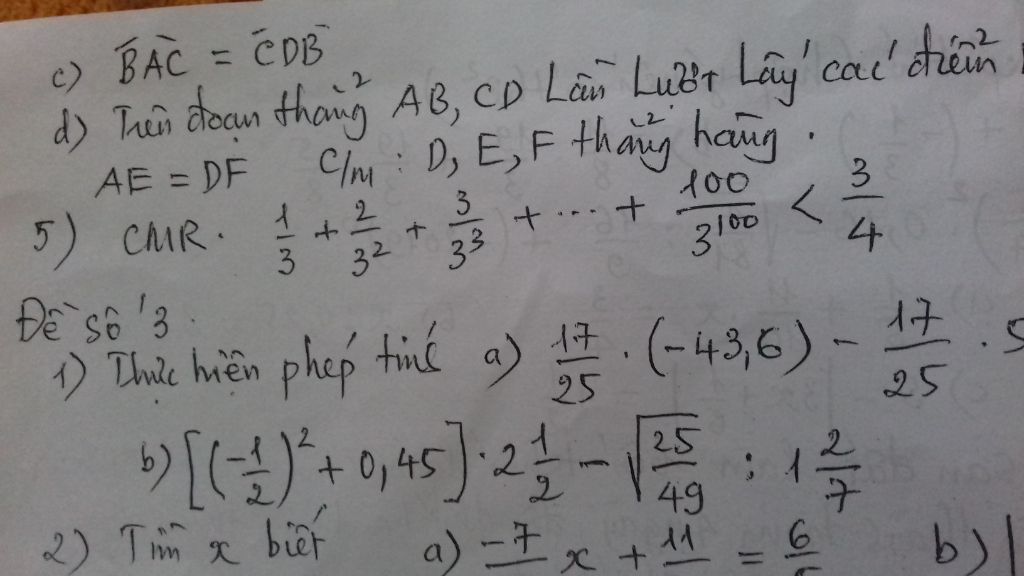 c) BAC = CDB
d) Trên đoạn thẳng AB, CD Lần Lượt Lấy các điểm
AE = DF C/m : D, E, F thẳng hàng.
5) CMR. 1/3 + 2/3² + 3/3³ + ... + 100/3¹⁰⁰ < 3/4
Đề số 3.
1) Thực hiện phép tính a) 17/25 . (-43,6) - 17/25 . 5
b) [(-1/2)² + 0,45] . 2 1/2 - √(25/49) : 1 2/7
2) Tìm x biết a) -7 x + 11 = 6 b) |